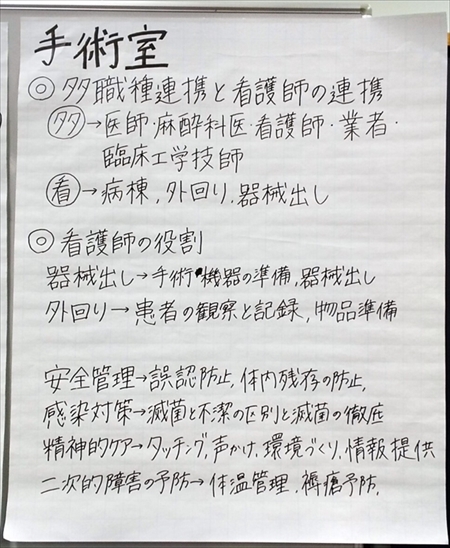 手術室
◎ 多職種連携と看護師の連携
多→医師・麻酔科医・看護師・業者・
臨床工学技師
看→病棟,外回り,器械出し
◎ 看護師の役割
器械出し→手術・機器の準備,器械出し
外回り→患者の観察と記録,物品準備
安全管理→誤認防止,体内残存の防止,
感染対策→滅菌と不潔の区別と滅菌の徹底
精神的ケア→タッチング,声かけ,環境づくり,情報提供
二次的障害の予防→体温管理,褥瘡予防,